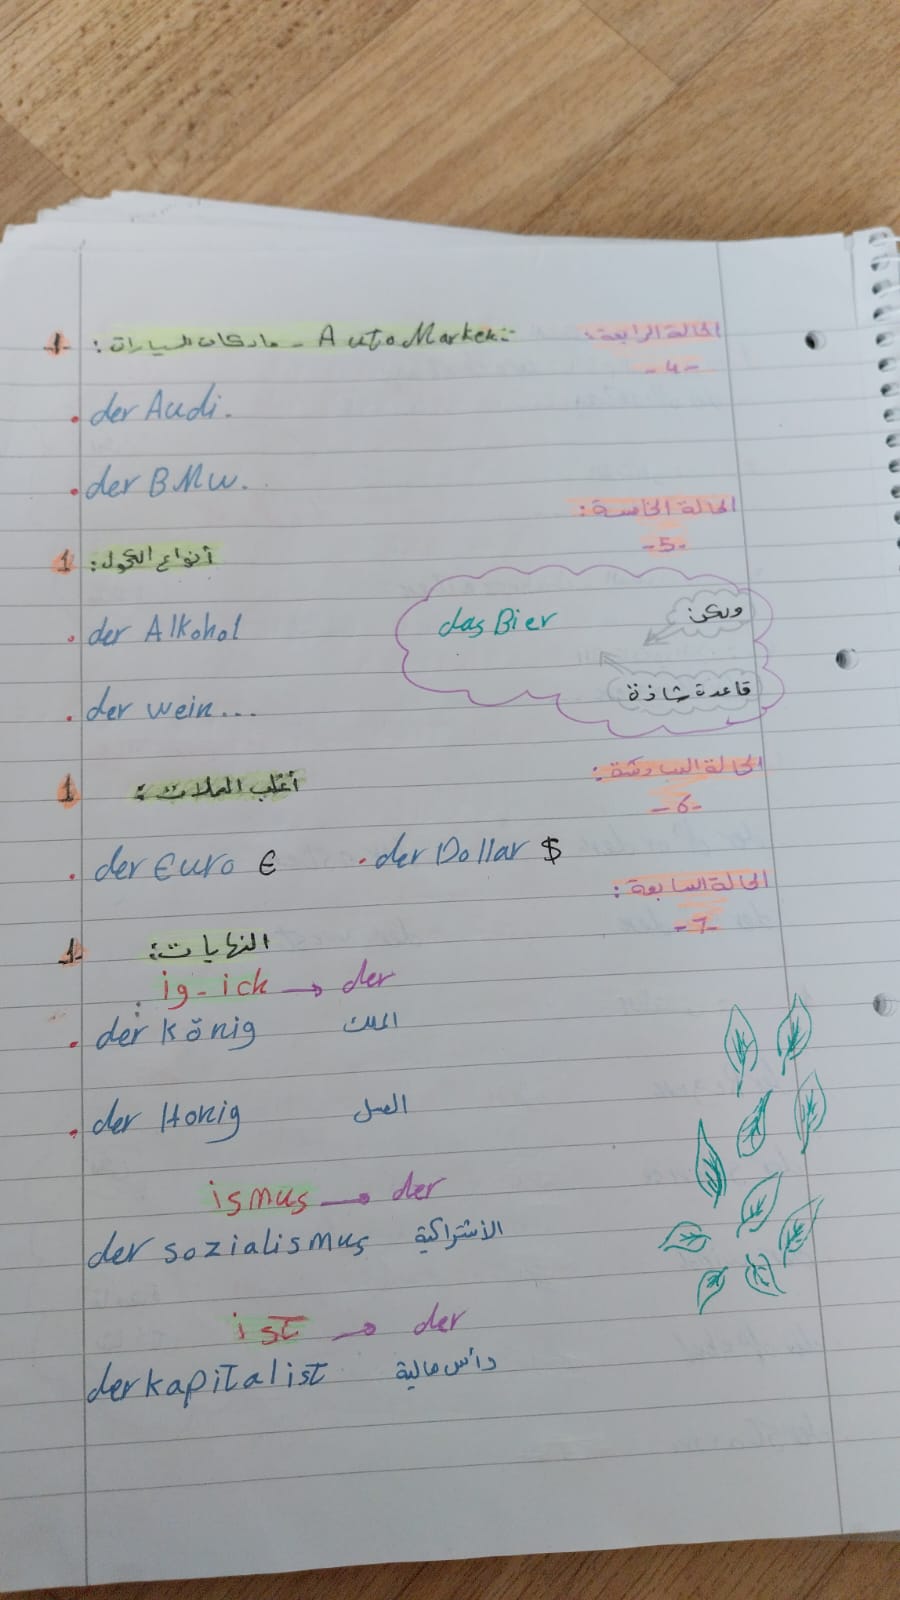 الحالة الرابعة:
-4-
1 Auto Marken - ماركات السيارات:
. der Audi.
. der BMW.
الحالة الخامسة:
-5-
1 أنواع الكحول:
. der Alkohol
ولكن
das Bier
قاعدة شاذة
. der wein...
الحالة السادسة:
-6-
1 أغلب العملات:
. der Euro € . der Dollar $
الحالة السابعة:
-7-
1 النهايات:
ig - ick → der
. der könig الملك
. der Honig العسل
ismus → der
der sozialismus الأشتراكية
ist → der
der kapitalist رأس مالية